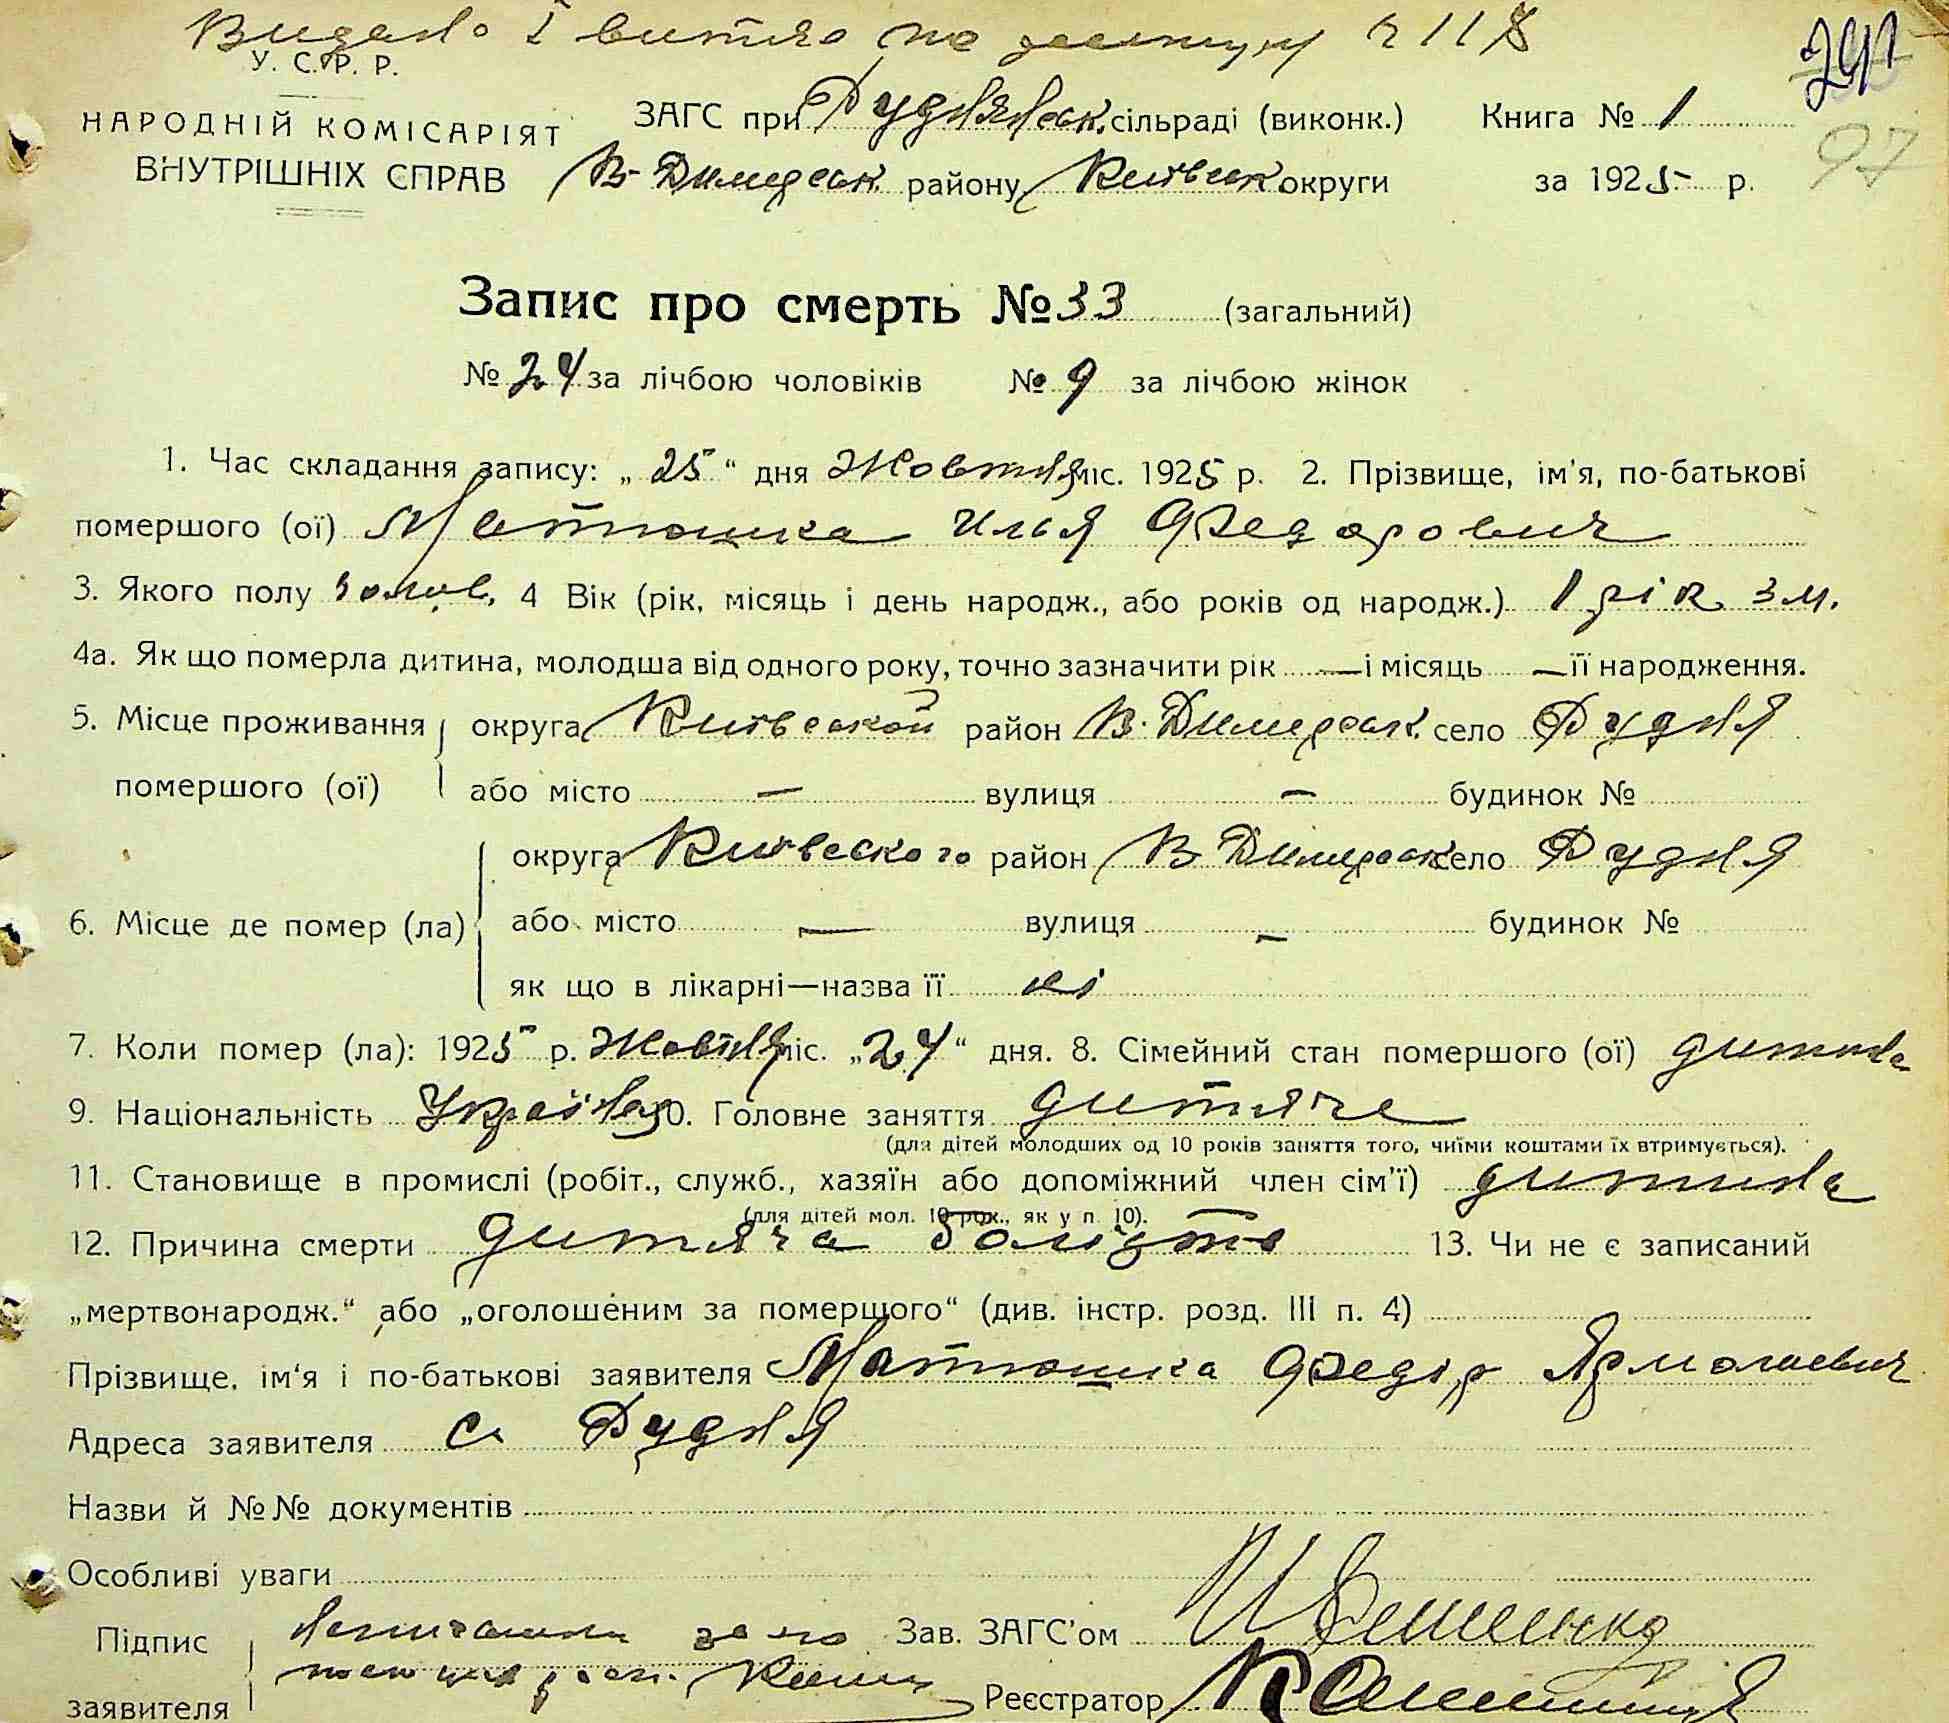 Видано 1 витяг по № 118
291
У. С. Р. Р.
97
НАРОДНІЙ КОМІСАРІЯТ
ВНУТРІШНІХ СПРАВ
ЗАГС при Руднянськ. сільраді (виконк.) Книга № 1
В-Димерськ. району Київськ. округи за 1925 р.
Запис про смерть № 33 (загальний)
№ 24 за лічбою чоловіків № 9 за лічбою жінок
1. Час складання запису: „ 25 “ дня Жовтня міс. 1925 р. 2. Прізвище, ім'я, по-батькові
помершого (ої) Матюшка Илья Федорович
3. Якого полу чолов. 4 Вік (рік, місяць і день народж., або років од народж.) 1 рік 3 м.
4а. Як що померла дитина, молодша від одного року, точно зазначити рік — і місяць — її народження.
5. Місце проживання помершого (ої) округа Київськой район В-Димерськ. село Рудня
або місто — вулиця — будинок №
6. Місце де помер (ла) округа Київського район В Димерськ село Рудня
або місто — вулиця — будинок №
як що в лікарні—назва її ні
7. Коли помер (ла): 1925 р. Жовтня міс. „24“ дня. 8. Сімейний стан помершого (ої) дитина
9. Національність Україн. 10. Головне заняття дитяче
(для дітей молодших од 10 років заняття того, чиїми коштами їх втримується).
11. Становище в промислі (робіт., служб., хазяїн або допоміжний член сім'ї) дитина
(для дітей мол. 10 рок., як у п. 10).
12. Причина смерти дитяча болізть 13. Чи не є записаний
„мертвонародж.“ або „оголошеним за помершого“ (див. інстр. розд. III п. 4)
Прізвище, ім'я і по-батькові заявителя Матюшка Федір Ярмолаевич
Адреса заявителя с. Рудня
Назви й №№ документів
Особливі уваги
Підпис заявителя
Зав. ЗАГС'ом
Реєстратор